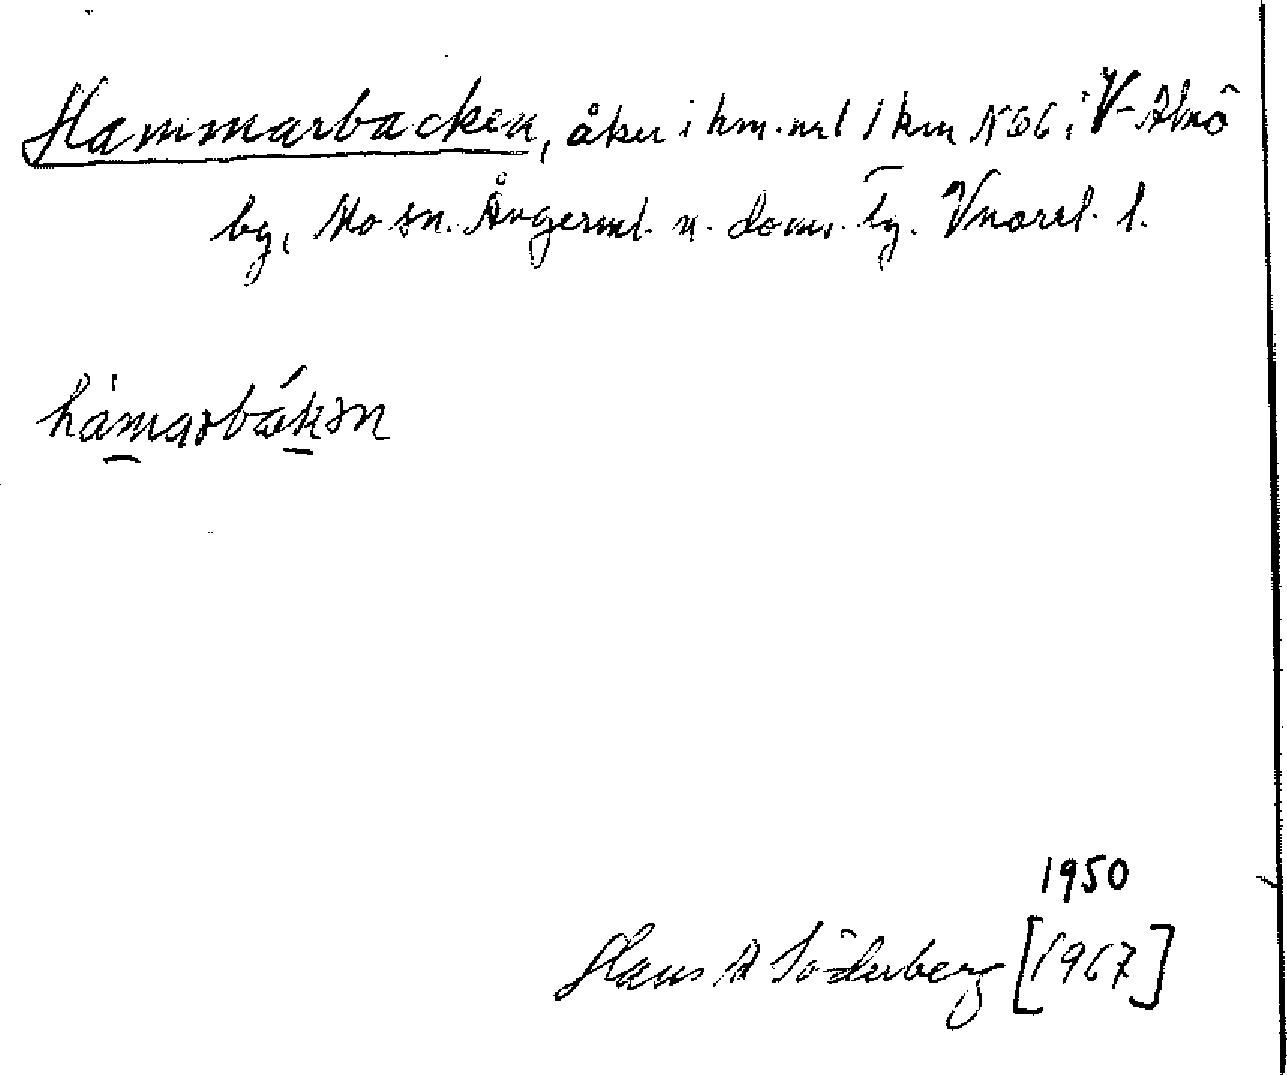 Hammarbacken, åker i hm.nr 1 1 km NO i V-Alnö
by, Mo sn. Ångerml. n. doms. Tg. Vnorrl. l.
håmarbákən
1950
Hans A Söderberg [1967]